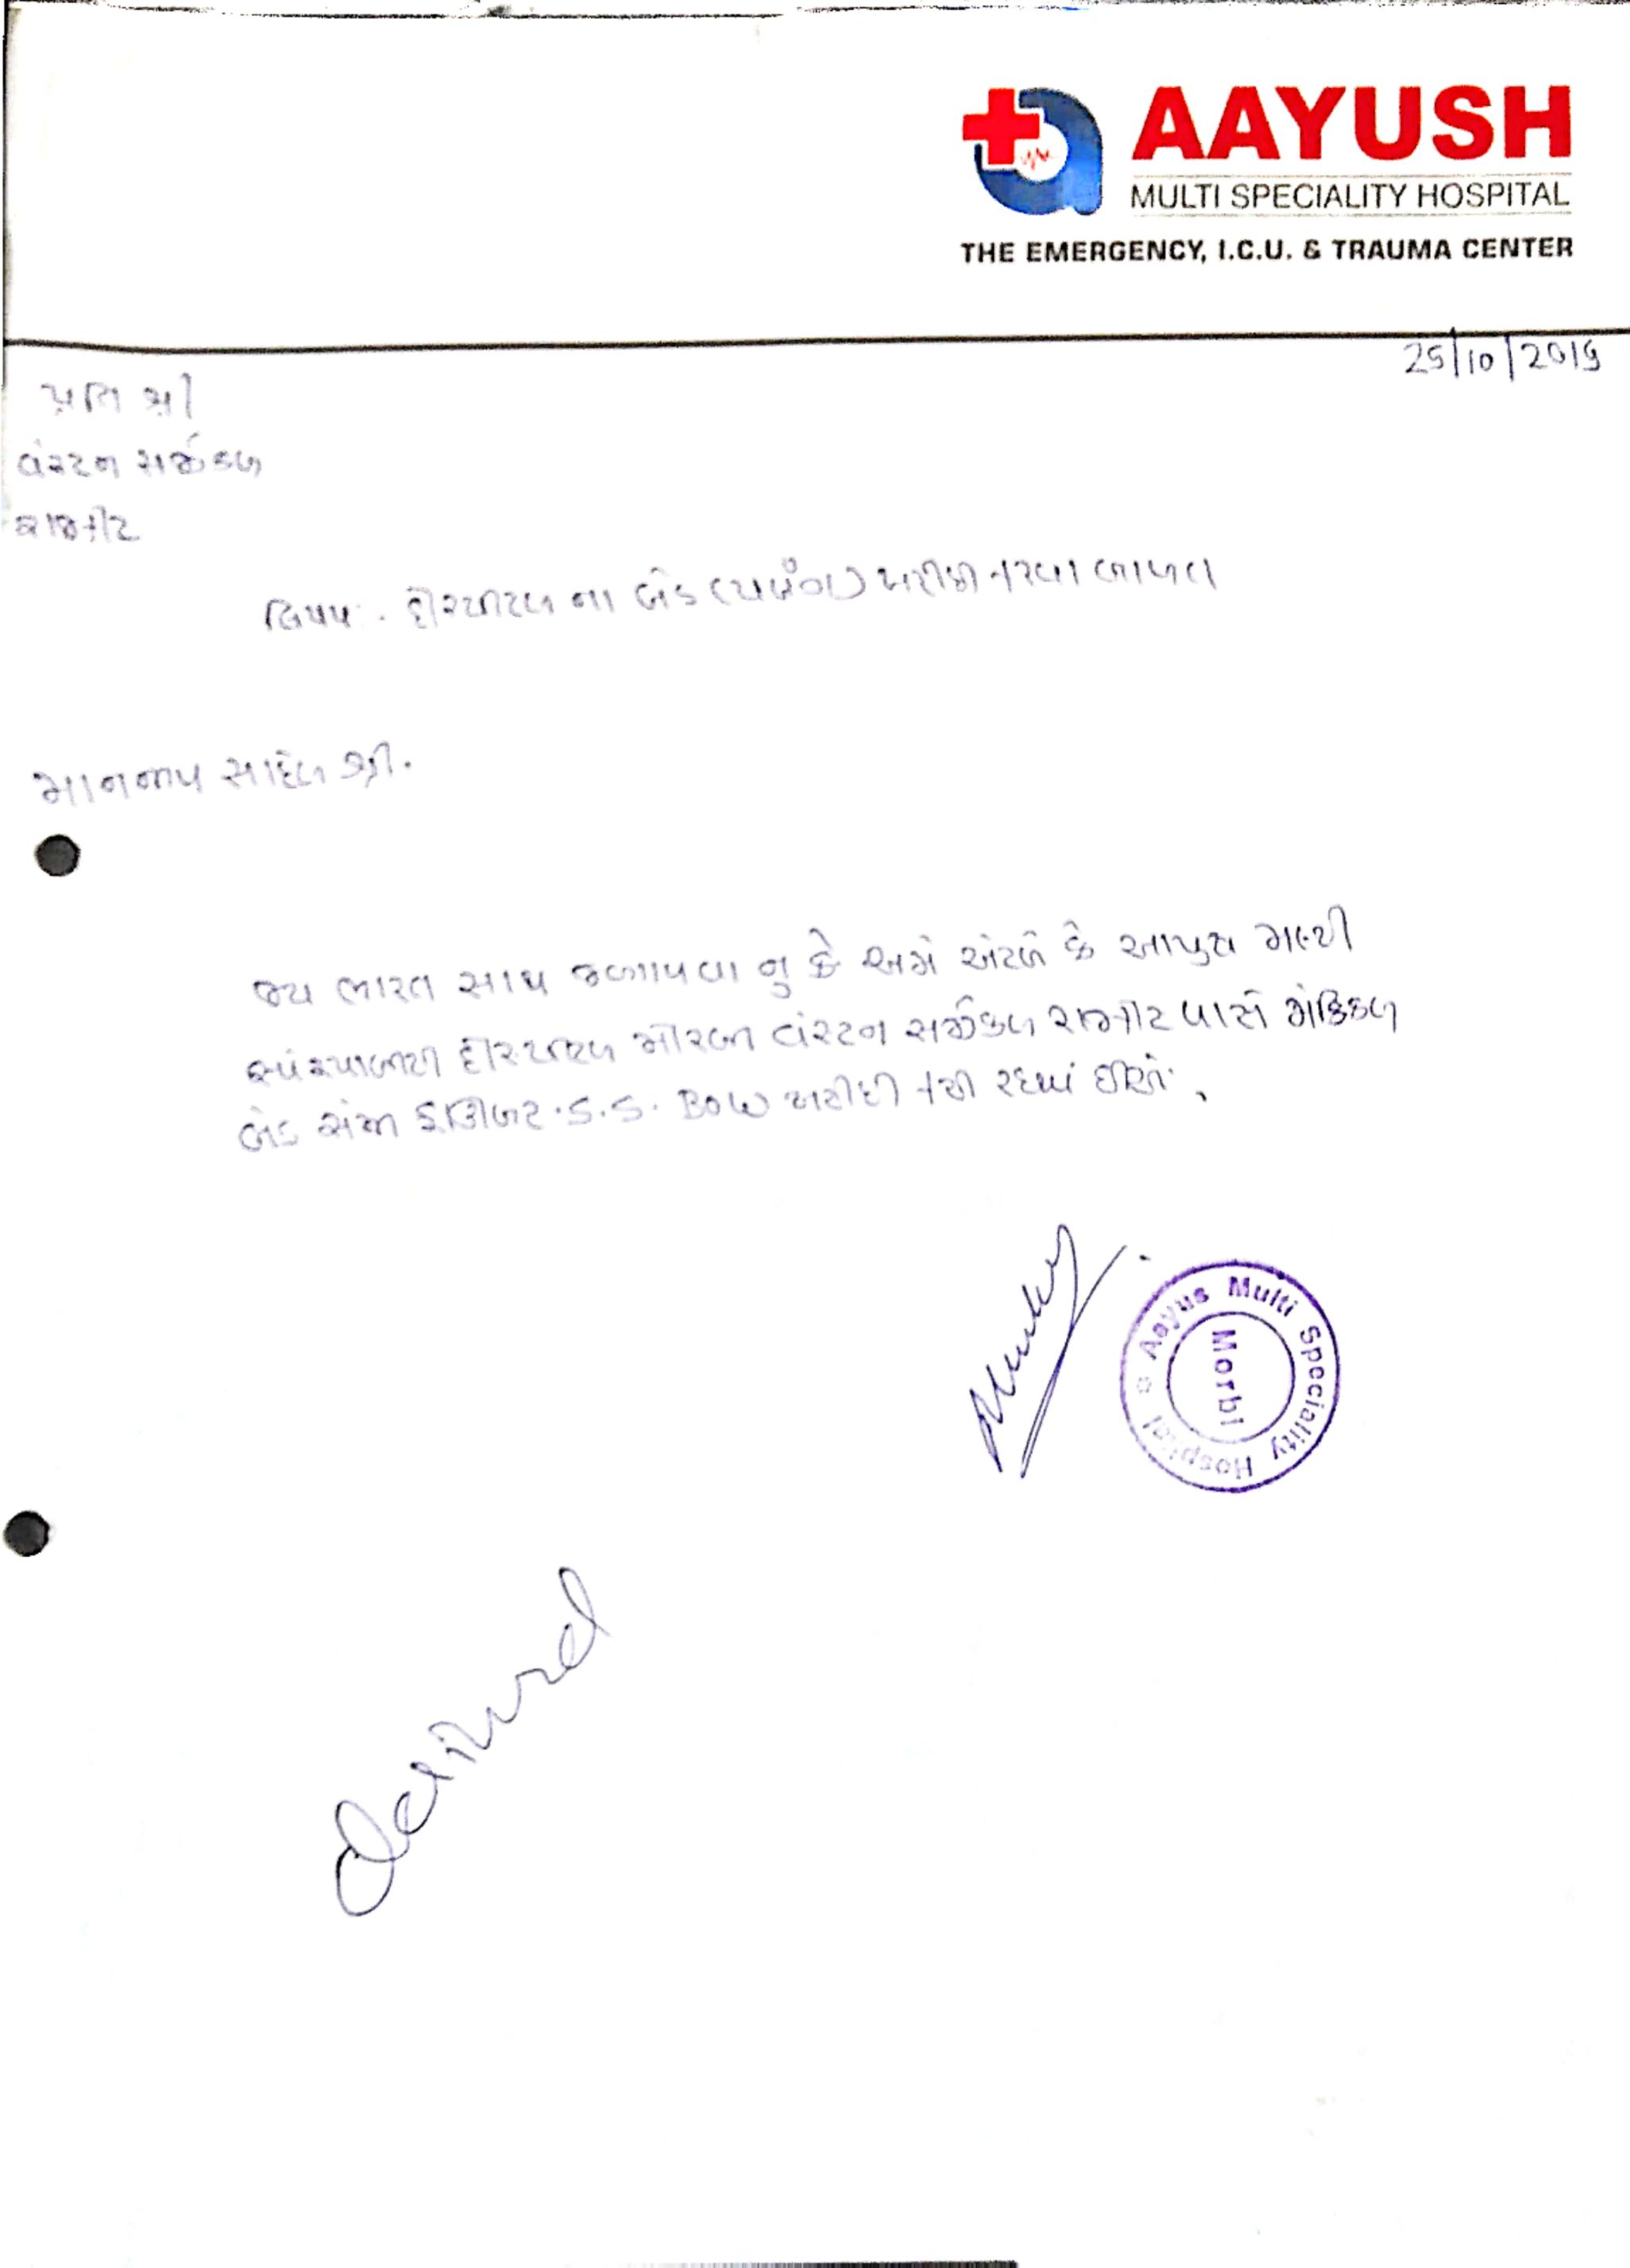 AAYUSH
MULTI SPECIALITY HOSPITAL
THE EMERGENCY, I.C.U. & TRAUMA CENTER
25/10/2019
પ્રતિ શ્રી
વેસ્ટન સર્જીકલ
રાજકોટ
વિષય : હોસ્પીટલ ના બેડ (પલંગ) ખરીદી કરવા બાબત
માનનીય સાહેબ શ્રી.
જય ભારત સાથ જણાવવા નુ કે અમે એટલે કે આયુષ મલ્ટી
સ્પેશ્યાલીટી હોસ્પીટલ મોરબી વેસ્ટન સર્જીકલ રાજકોટ પાસે મેડિકલ
બેડ ફર્નીચર .S.S. Bowl ખરીદી કરી રહયાં છીએ.
Aayus Multi Speciality Hospital
Morbi